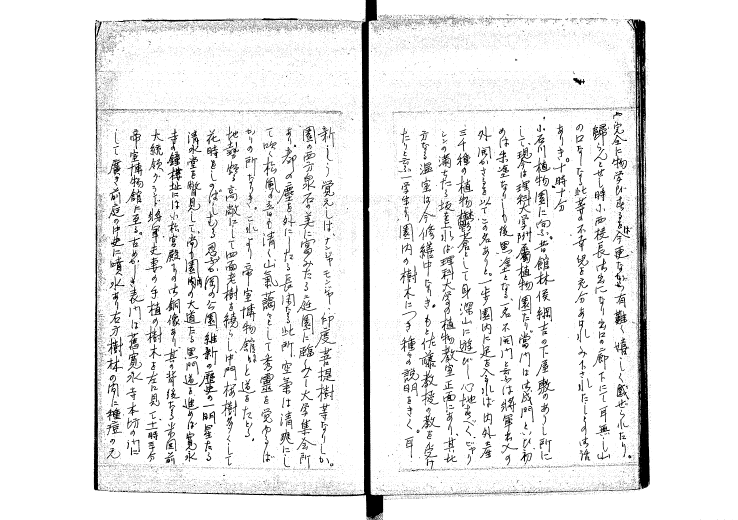 や完全に物学び出来るは今更ながら有難く嬉しく感ぜられたり。
帰らんとせし時小西校長出になり出口の廊下にて耳無し山
の口なしなど此等の不幸児を充分あはれみたされたしとの御話
ありき。十時十分
小石川植物園に向ふ。昔館林侯綱吉の下屋敷のありし所に
して、現に理科大学附属植物園たり。當門は御成門といひ初
めは朱塗なりしも後黒塗となる。一名不開門と云ふは将軍出入の
外開かざるを以てこの名あり。一歩園内に足を入るれば内外産
三千種の植物鬱蒼として身深山に遊びし心地す。
の満ちたる坂を上れば理科大学の植物教室正面にあり、其北
方なる温室は今修繕中なりき。もと佐藤教授の教を受け
たりと云ふ一学生より園内の樹木につき種々の説明をきく。耳
新しう覚えしは、印度菩提樹等なりしか。
園の西方泉石の美に富みたる庭園に臨みて大学集会所
あり。都の塵を外にしたる長閑なる此所、空気は清爽にし
て吹く松風の音も清く山気靄々として秀霊を覚ゆるば
かりの所なりき。これより帝室博物館へと道をたどる。
地勢狭る高敞にして四面老樹を繞らし中門桜樹多くして
花時をしのばしむる忍ヶ岡の公園維新の歴史の一明星たる
清水堂を瞥見して尚も園内の大道たる黒門道を進めば寛永
寺の鐘楼址には小松宮殿下の御銅像あり其の背後なる歩園前
大統領グラント将軍夫妻の手植の樹木を左に見て十一時半
帝室博物館に至る。古めかしき表門は舊寛永寺本坊の門に
して廣き前庭の中央に噴水あり右方樹林の間に種痘の元